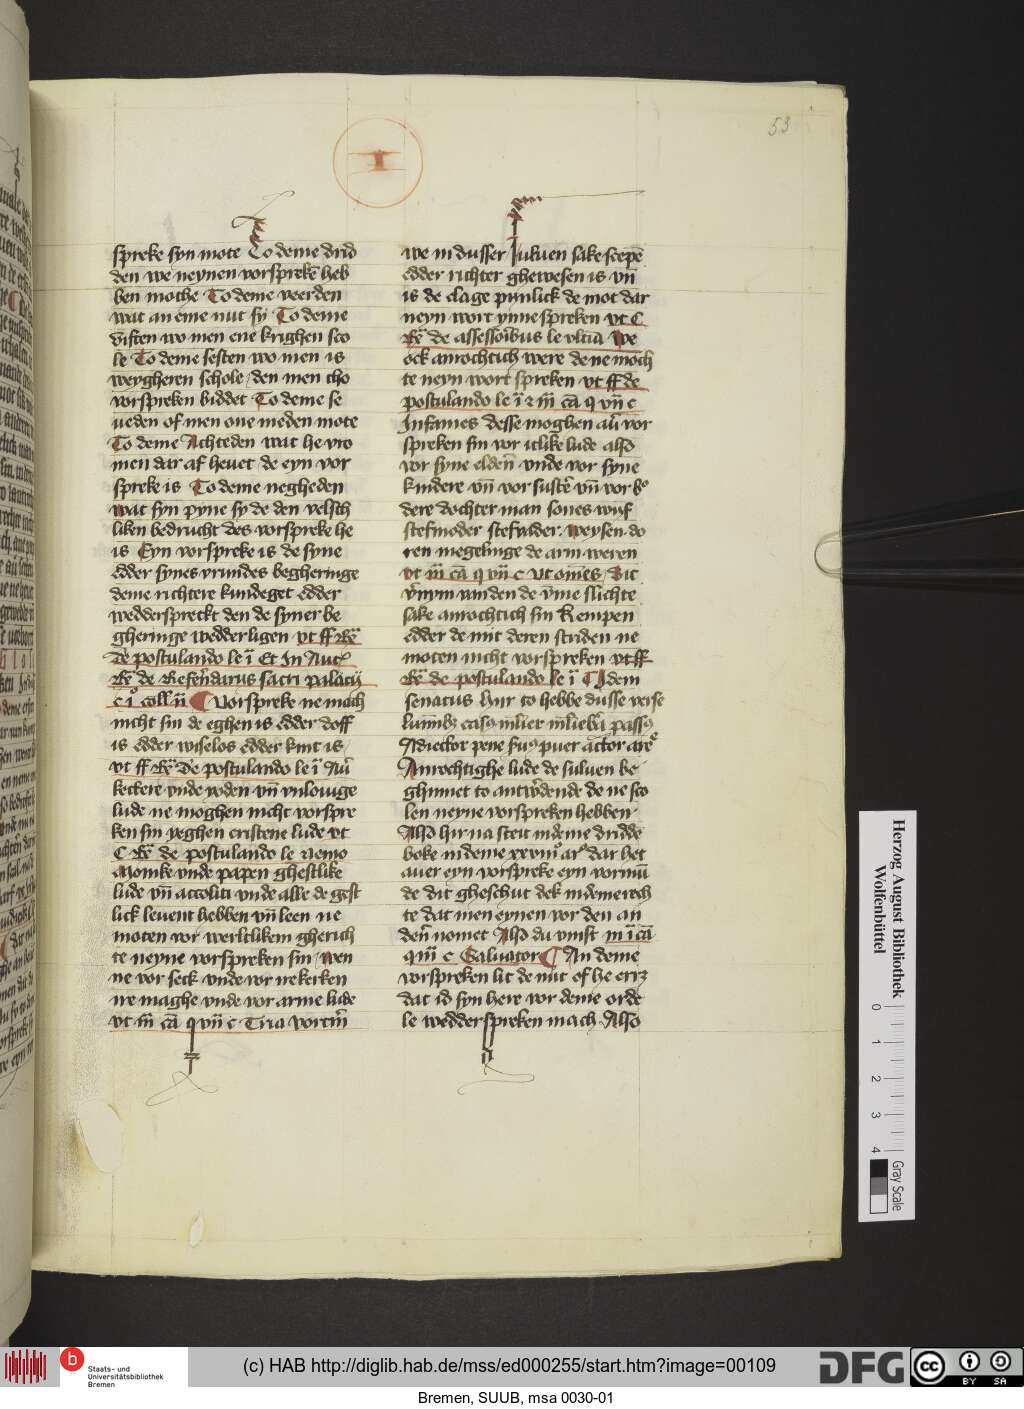 53
I
spreke syn mote To deme drid
den we neynen vorsprekē heb
ben moche To deme veerden
wat an eme nut sy To deme
viften wo men ene krighen sco
le To deme sesten wo men is
weygheren schole den men tho
vorspreken biddet To deme se
ueden of men one meden mote
To deme Achteden wat he vro
men dar af heuet de eyn vor
spreke is To deme negheden
wat syn pyne sy de den velsch
liken bedrucht des vorspreke he
is Eyn vorspreke is de syne
edder synes vrundes begheringe
deme richtere kundeget edder
wedderspreckt den de syner be
gheringe wedder ligen vt ff Rē
de postulando le ī Et In Aut
Rē de Referēdarus sacri palacij
c i coll ii Vorspreke ne mach
nicht sin de eghen is edder doff
is edder wiselos edder kint is
vt ff Rē De postulando le ī Au
keckere vnde yoden vn̄ vnlouige
lude ne moghen nicht vorspre
ken sin yeghen cristene lude vt
C Rē de postulando le nemo
Monike vnde papen ghestlike
lude vn̄ accoliti vnde alle de gest
lick leuent hebben vn̄ leen ne
moten vor werltlikem gherich
te neyne vorspreken sin wen
ne vor seck vnde vor ne kerken
vre maghe vnde vor arme lude
vt iij cā q vij c Tria vortm̄
we in dusser suluen sake scepē
edder richter ghewesen is vn̄
is de clage pynlick de mot dar
neyn wort ynne spreken vt C
Rē de assessoribus le vltiā We
ock anrochtich were de ne moch
te neyn wort spreken vt ff de
postulando le ī 2 iij cā q vij c
Infames desse moghen au vor
spreken sin vor itlike lude also
vor syne elderī vnde vor syne
kindere vn̄ vor sustē vn̄ vor b
dere dochter man sones wyf
stefmoder stefvader weysen do
ren megelinge de arm weren
vt iij cā q vij c Vt omēs Dit
vrnym van den de vme slichte
sake anrochtich sin Kempen
edder de mit deren striden ne
moten nicht vorspreken vt ff
Rē de postulando le ī Idem
senatus hyr to hebbe dusse verse
luminibz casus mulier
Adiector pene seruus puer actor
Anrochtighe lude de suluen be
ghinnet to antwdende de ne sco
len neyne vorspreken hebben
Also hir na steit in deme dridde
boke in deme xxviij ar dar het
auer eyn vorspreke eyn vormū
de dit gheschut dek in deme rech
te dat men eynen vor den an
derē nomet Also du vinst in i cā
q iij c Saluator An deme
vorspreken lit de mit of he erre
dat id syn here vor deme orde
le wedderspreken mach Also
Herzog August Bibliothek
Wolfenbüttel
0 1 2 3 4
Gray Scale
b Staats- und
Universitätsbibliothek
Bremen
(c) HAB http://diglib.hab.de/mss/ed000255/start.htm?image=00109
DFG
cc BY SA
Bremen, SUUB, msa 0030-01